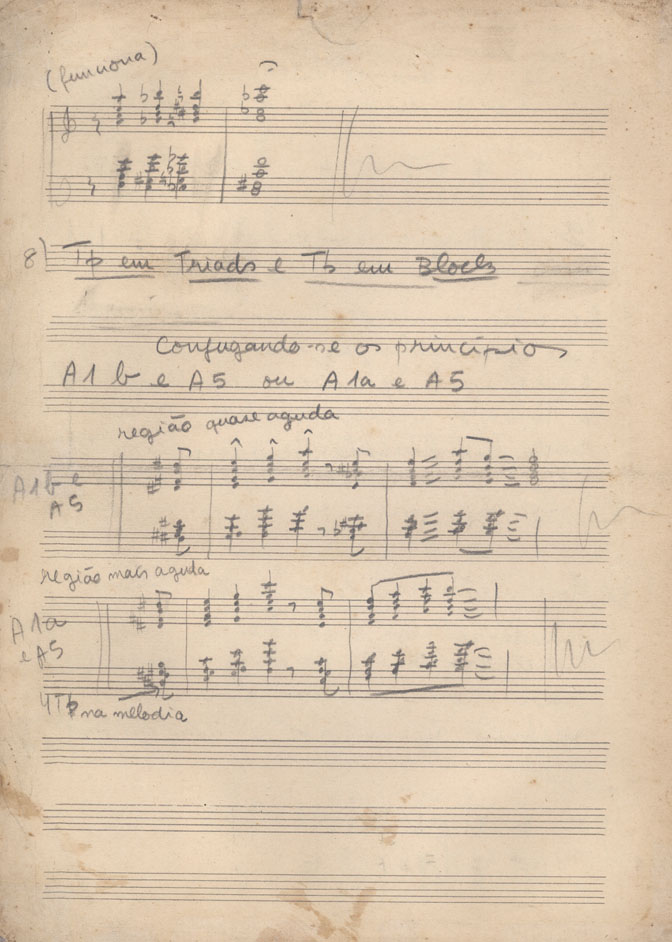 (funciona)
8) Tp em Triads e Tb em Blocks
Conjugando-se os princípios
A1 b e A5 ou A1a e A5
região quase aguda
A1b e
A5
região mais aguda
A1a
e A5
4Tb na melodia